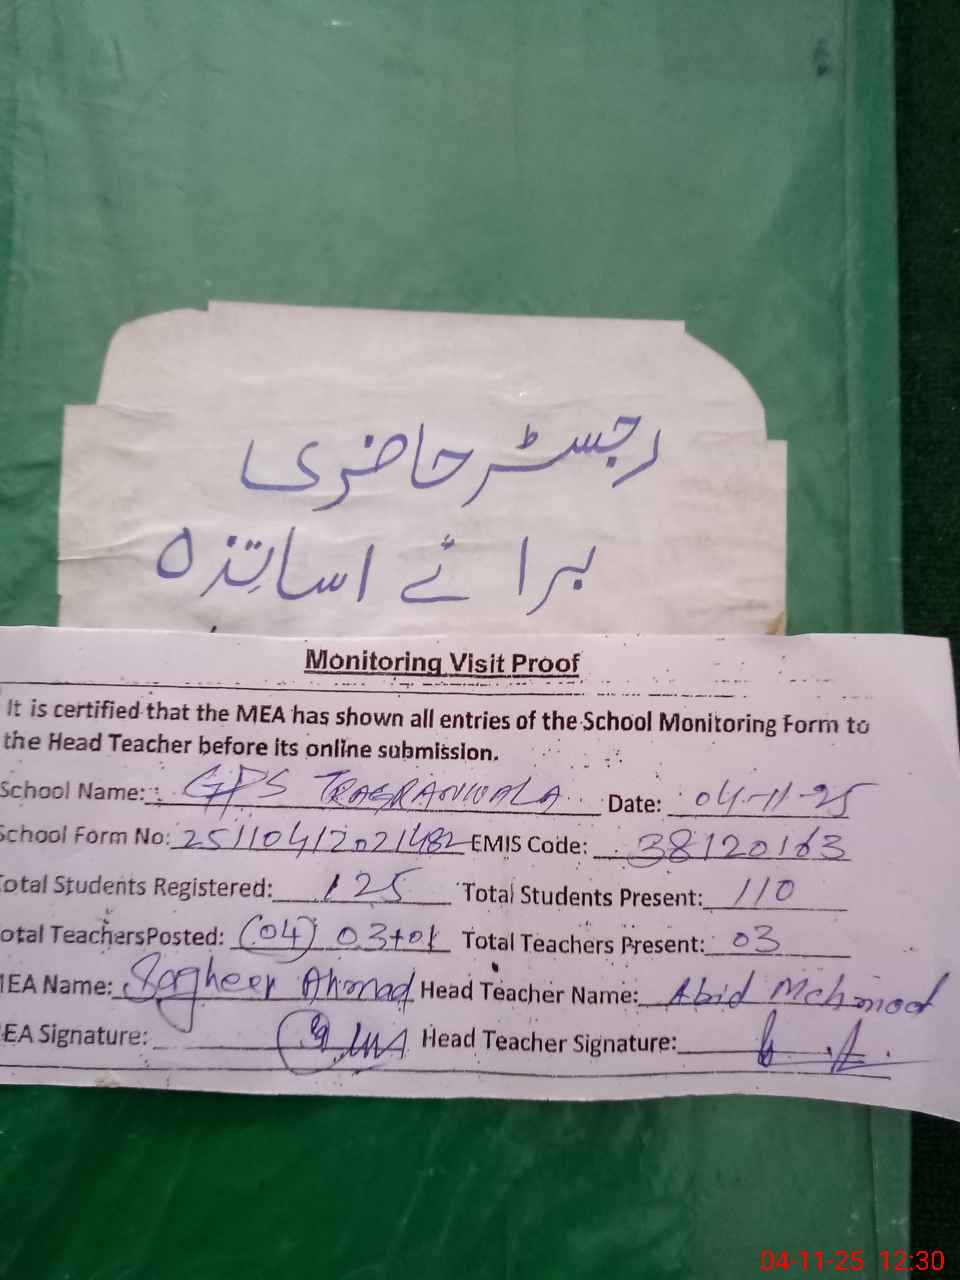 رجسٹر حاضری
برائے اساتذہ
Monitoring Visit Proof
It is certified that the MEA has shown all entries of the School Monitoring Form to
the Head Teacher before its online submission.
School Name: GPS Date: 04-11-25
School Form No: 25110412021482 EMIS Code: 38120163
Total Students Registered: 125 Total Students Present: 110
otal TeachersPosted: (04) 03+01 Total Teachers Present: 03
MEA Name: Sagheer Ahmad Head Teacher Name: Abid Mehmood
EA Signature: Head Teacher Signature:
04-11-25 12:30